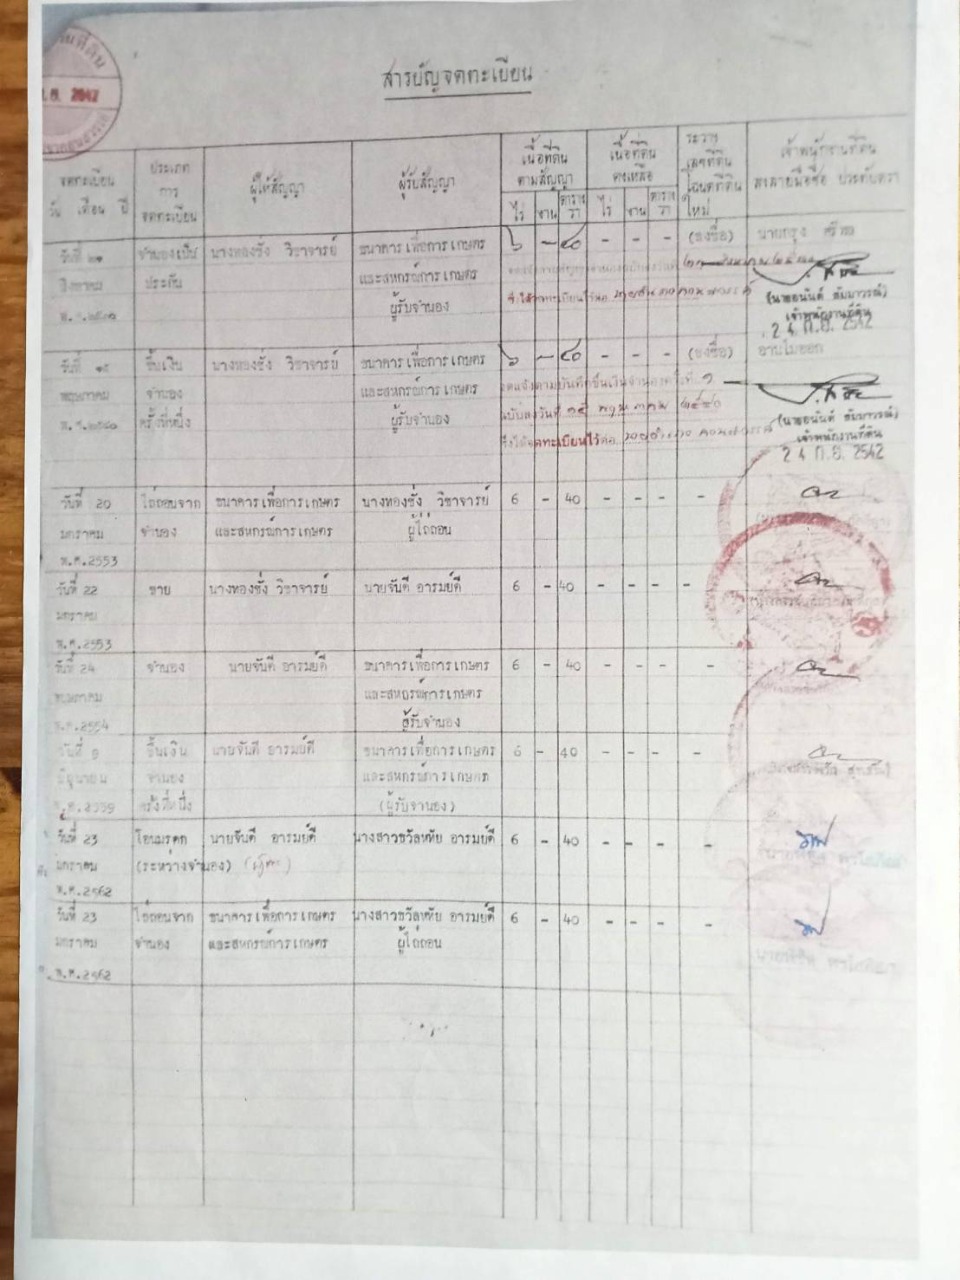 2542
สารบัญจดทะเบียน
จดทะเบียน
วัน เดือน ปี
ประเภท
การ
จดทะเบียน
ผู้ให้สัญญา
ผู้รับสัญญา
เนื้อที่ดิน
ตามสัญญา
ไร่ งาน ตาราง
วา
เนื้อที่ดิน
คงเหลือ
ไร่ งาน ตาราง
วา
ระวาง
เลขที่ดิน
โฉนดที่ดิน
ใหม่
เจ้าพนักงานที่ดิน
ลงลายมือชื่อ ประทับตรา
วันที่ ๒๑ จำนองเป็น นางทองชั่ง วิชาจารย์ ธนาคารเพื่อการเกษตร ๖ - ๔๐ - - - (ลงชื่อ)
สิงหาคม ประกัน และสหกรณ์การเกษตร
ผู้รับจำนอง
(นายอนันต์ สัมมาวรณ์)
เจ้าพนักงานที่ดิน
24 ก.ย. 2542
วันที่ ๑๕ ขึ้นเงิน นางทองชั่ง วิชาจารย์ ธนาคารเพื่อการเกษตร ๖ - ๔๐ - - - (ลงชื่อ) อ่านไม่ออก
พฤษภาคม จำนอง และสหกรณ์การเกษตร
ครั้งที่หนึ่ง ผู้รับจำนอง
(นายอนันต์ สัมมาวรณ์)
เจ้าพนักงานที่ดิน
24 ก.ย. 2542
วันที่ 20 ไถ่ถอนจาก ธนาคารเพื่อการเกษตร นางทองชั่ง วิชาจารย์ 6 - 40 - - - -
มกราคม จำนอง และสหกรณ์การเกษตร ผู้ไถ่ถอน
พ.ศ.2553
วันที่ 22 ขาย นางทองชั่ง วิชาจารย์ นายจันดี อารมย์ดี 6 - 40 - - - -
มกราคม
พ.ศ.2553
วันที่ 24 จำนอง นายจันดี อารมย์ดี ธนาคารเพื่อการเกษตร 6 - 40 - - - -
และสหกรณ์การเกษตร
พ.ศ.2554 ผู้รับจำนอง
ขึ้นเงิน นายจันดี อารมย์ดี ธนาคารเพื่อการเกษตร 6 - 40 - - - -
มิถุนายน จำนอง และสหกรณ์การเกษตร
พ.ศ.2559 ครั้งที่หนึ่ง (ผู้รับจำนอง)
วันที่ 23 โอนมรดก นายจันดี อารมย์ดี นางสาวขวัลหทัย อารมย์ดี 6 - 40 - - - -
มกราคม (ระหว่างจำนอง)
พ.ศ.2562
วันที่ 23 ไถ่ถอนจาก ธนาคารเพื่อการเกษตร นางสาวขวัลหทัย อารมย์ดี 6 - 40 - - - -
มกราคม จำนอง และสหกรณ์การเกษตร ผู้ไถ่ถอน
พ.ศ.2562